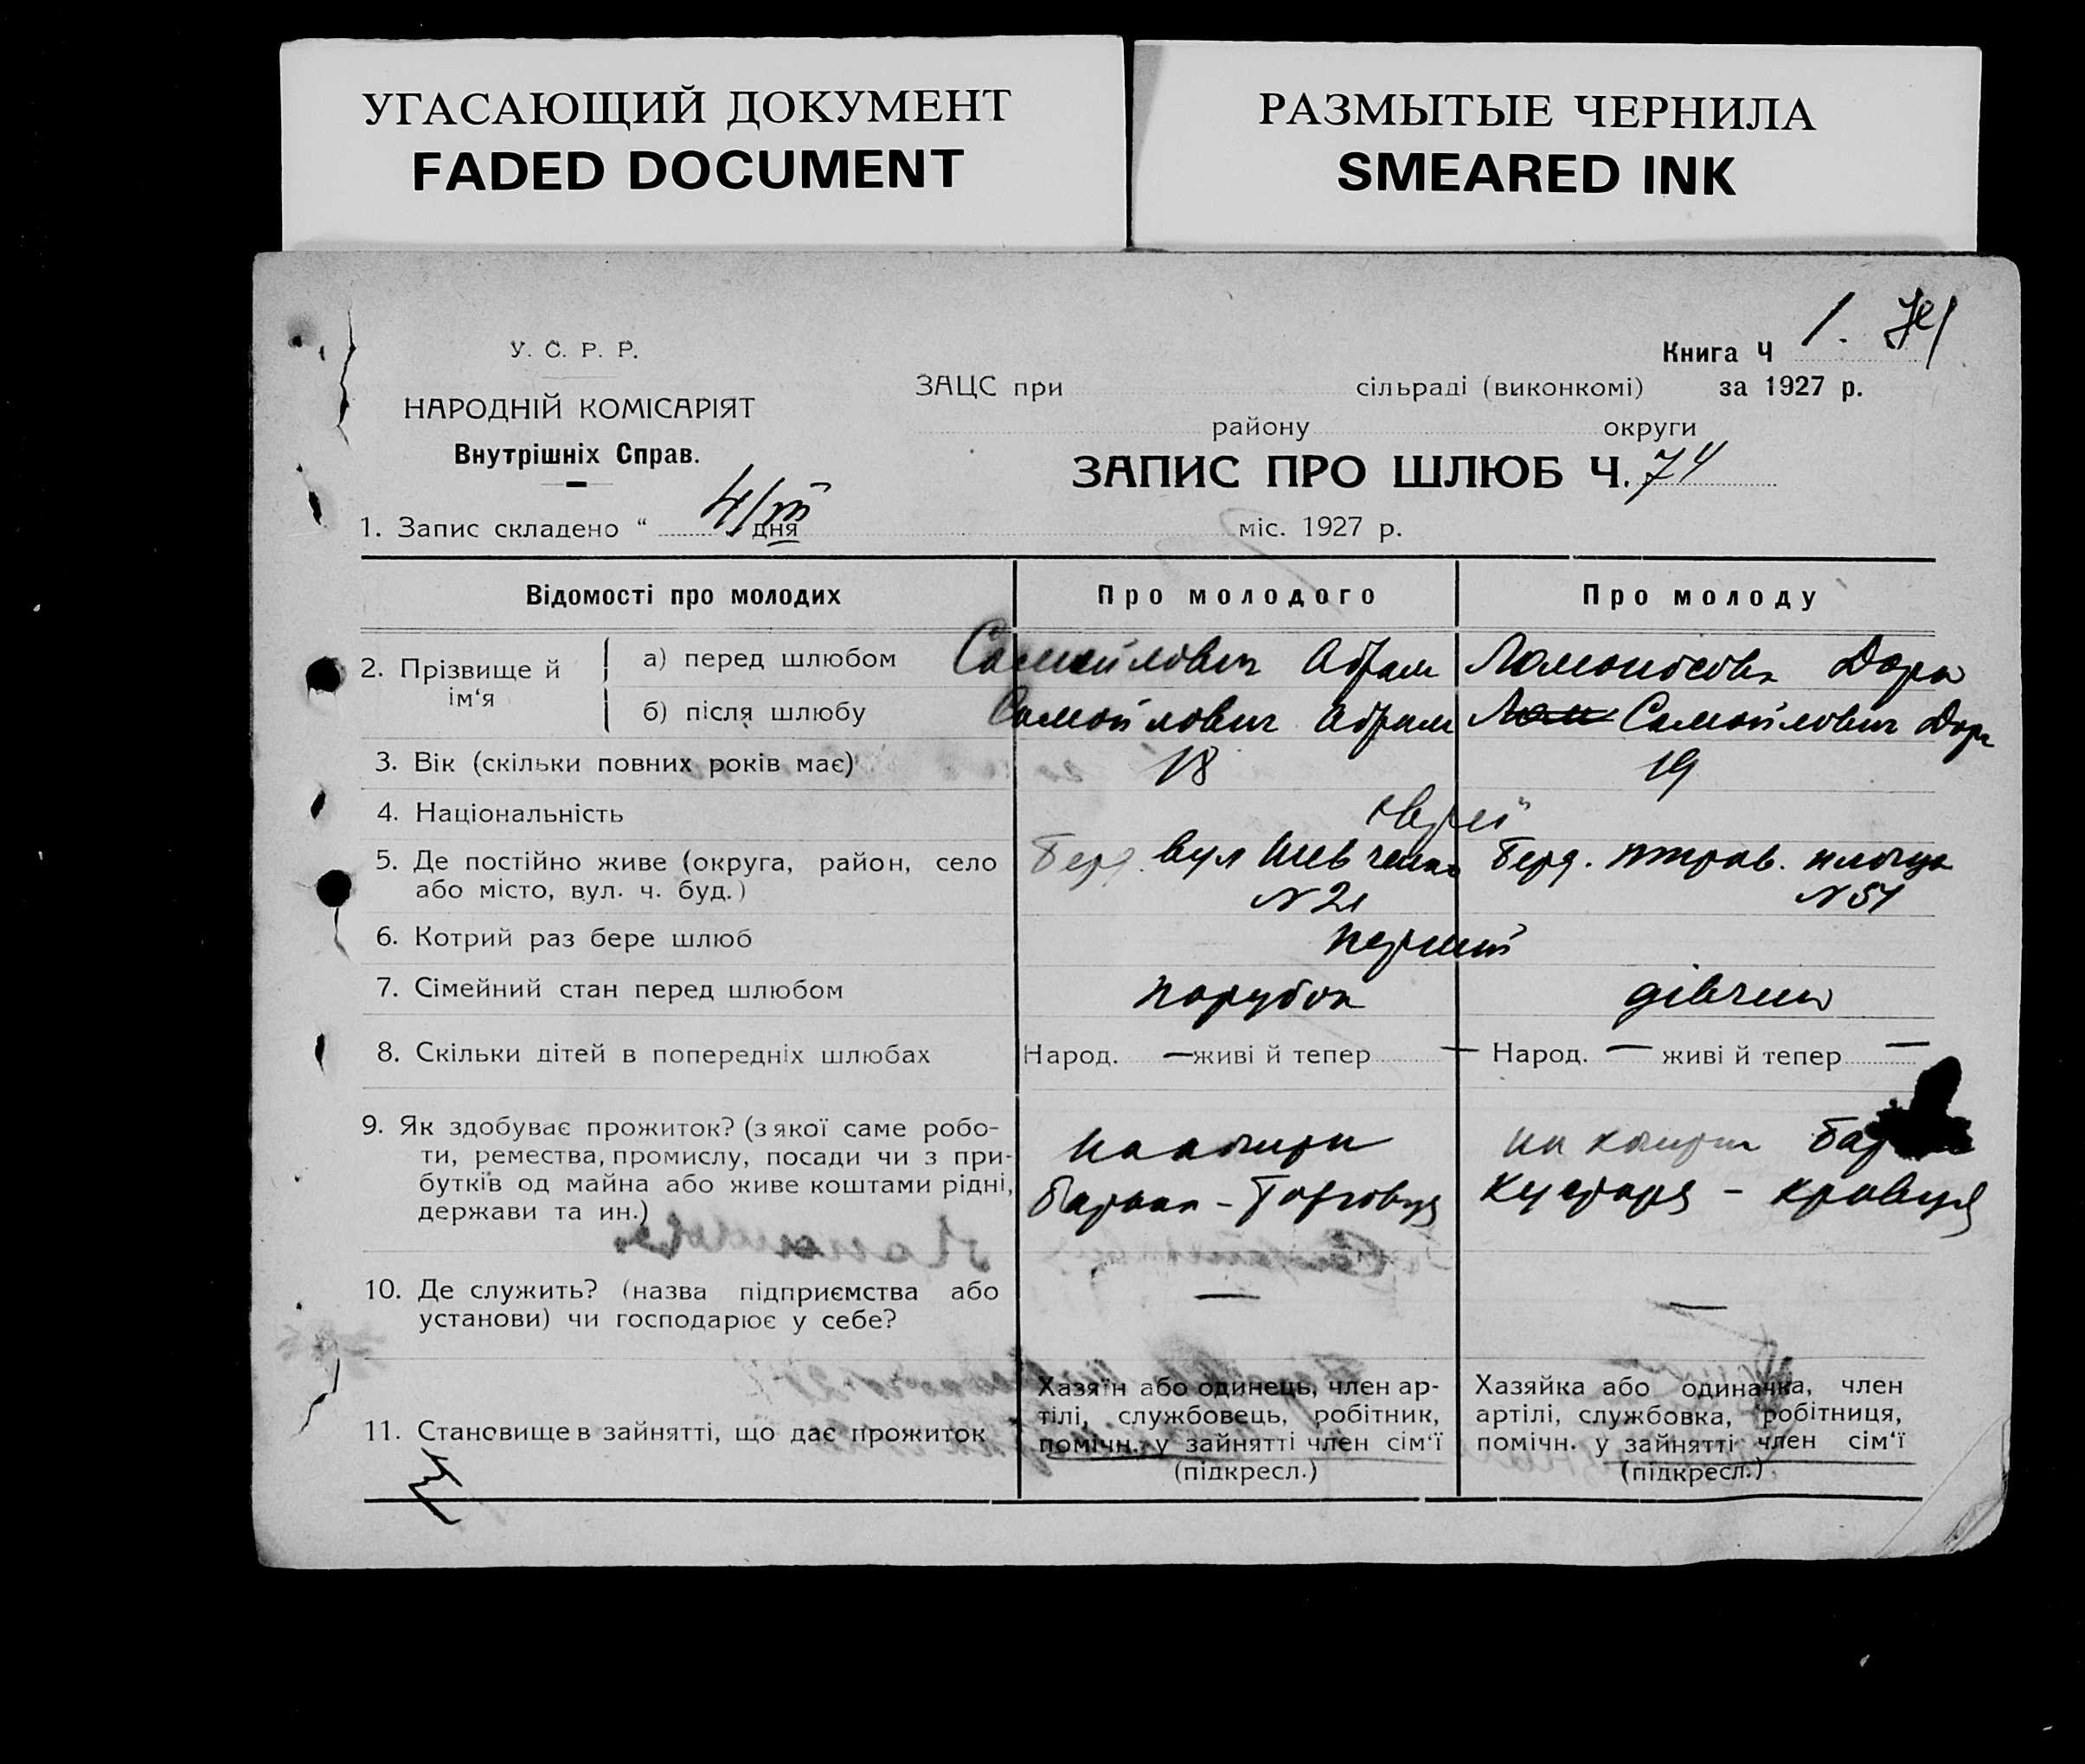 УГАСАЮЩИЙ ДОКУМЕНТ
FADED DOCUMENT
РАЗМЫТЫЕ ЧЕРНИЛА
SMEARED INK
У. С. Р. Р.
НАРОДНІЙ КОМІСАРІЯТ
Внутрішніх Справ.
Книга Ч 1.
ЗАЦС при сільраді (виконкомі) за 1927 р.
району округи
ЗАПИС ПРО ШЛЮБ Ч. 74
1. Запис складено “ 4/III дня міс. 1927 р.
Відомості про молодих Про молодого Про молоду
2. Прізвище й ім‘я
а) перед шлюбом Самойлович Абрам Ломоносова Дора
б) після шлюбу Самойлович Абрам Лом Самойлович Дора
3. Вік (скільки повних років має) 18 19
4. Національність євреї
5. Де постійно живе (округа, район, село Берд. вул Шевченка Берд. площа
або місто, вул. ч. буд.) N 21 N 51
6. Котрий раз бере шлюб перший
7. Сімейний стан перед шлюбом парубок дівчина
8. Скільки дітей в попередніх шлюбах Народ. — живі й тепер — Народ. — живі й тепер —
9. Як здобуває прожиток? (з якої саме робо-
ти, ремества, промислу, посади чи з при- на кошти
бутків од майна або живе коштами рідні, батька - Торговця кустаря - кравця
держави та ин.)
10. Де служить? (назва підприємства або — —
установи) чи господарює у себе?
11. Становище в зайнятті, що дає прожиток
Хазяїн або одинець, член ар-
тілі, службовець, робітник,
помічн. у зайнятті член сім‘ї
(підкресл.)
Хазяйка або одиначка, член
артілі, службовка, робітниця,
помічн. у зайнятті член сім‘ї
(підкресл.)